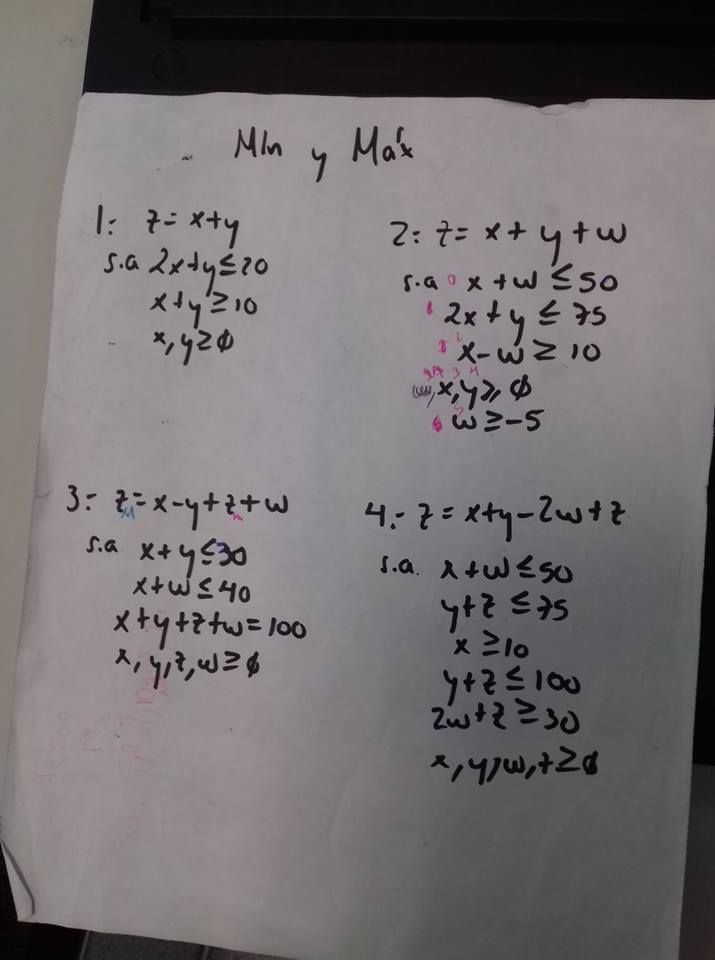 Mín y Máx
1.- z = x+y
s.a 2x+y ≤ 20
x+y ≥ 10
x, y ≥ 0
2.- z = x + y + w
s.a x + w ≤ 50
2x + y ≤ 75
x - w ≥ 10
x, y ≥ 0
w ≥ -5
3.- z = x-y+z+w
s.a x+y ≤ 30
x+w ≤ 40
x+y+z+w = 100
x, y, z, w ≥ 0
4.- z = x+y-2w+z
s.a. x+w ≤ 50
y+z ≤ 75
x ≥ 10
y+z ≤ 100
2w+z ≥ 30
x, y, w, z ≥ 0